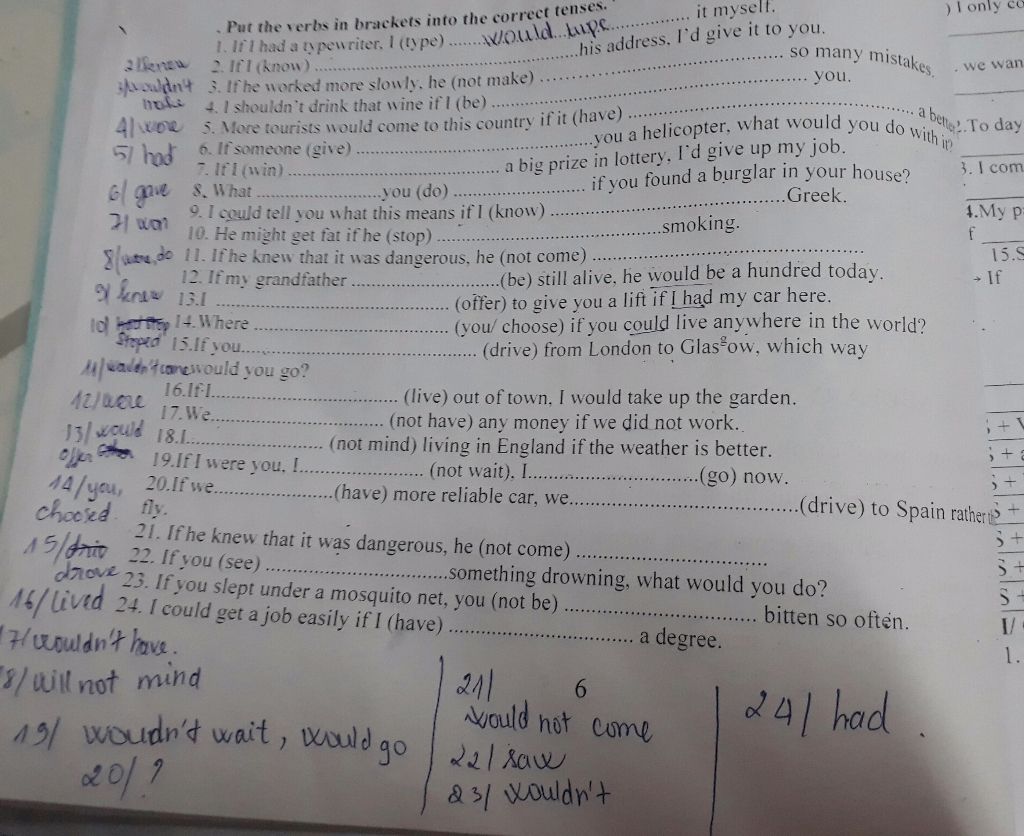 . Put the verbs in brackets into the correct tenses.
1. If I had a typewriter, I (type) ........would type................ it myself.
2. If I (know) ............................................his address, I'd give it to you.
3. If he worked more slowly, he (not make) ........................................ so many mistakes.
4. I shouldn't drink that wine if I (be) .................................................... you.
5. More tourists would come to this country if it (have) ............................................. a better
6. If someone (give) ........................................you a helicopter, what would you do with it?
7. If I (win) .................................... a big prize in lottery, I'd give up my job.
8. What .....................you (do) ...................... if you found a burglar in your house?
9. I could tell you what this means if I (know) .......................................Greek.
10. He might get fat if he (stop) ......................................smoking.
11. If he knew that it was dangerous, he (not come) ................................................
12. If my grandfather .........................(be) still alive, he would be a hundred today.
13.I ....................................... (offer) to give you a lift if I had my car here.
14. Where ................................. (you/ choose) if you could live anywhere in the world?
15.If you....................................... (drive) from London to Glasgow, which way
would you go?
16.If I.................................. (live) out of town, I would take up the garden.
17. We............................... (not have) any money if we did not work.
18.I...................... (not mind) living in England if the weather is better.
19.If I were you, I.................... (not wait). I.............................(go) now.
20.If we....................(have) more reliable car, we........................................(drive) to Spain rather
fly.
21. If he knew that it was dangerous, he (not come) ................................
22. If you (see) ..............................something drowning, what would you do?
23. If you slept under a mosquito net, you (not be) ................................ bitten so often.
24. I could get a job easily if I (have) ................................ a degree.
2/ knew
3/ wouldn't
make
4/ were
5/ had
6/ gave
7/ won
8/ do
9/ knew
10/
stoped
11/ wouldn't come
12/ were
13/ would
offer
14/ you,
choosed
15/
drove
16/ lived
17/ wouldn't have.
18/ will not mind
19/ woudn't wait, would go
20/ ?
21/
would not come
22/ saw
23/ wouldn't
6
24/ had .
) I only co
. we wan
2.To day
3. I com
4.My p
f
15.S
→ If
; +
; +
; +
S +
S +
S +
S +
I/
1.